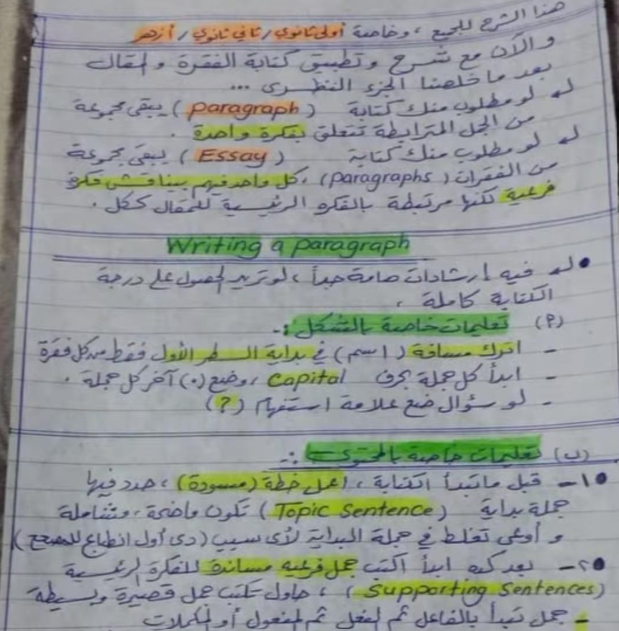 هذا الشرح للجميع ، وخاصة أولى ثانوي / ثاني ثانوي / أزهر
والآن مع شرح وتطبيق كتابة الفقرة والمقال
بعد ما خلصنا الجزء النظرى ...
لو مطلوب منك كتابة (paragraph) يبقى مجموعة
من الجمل المترابطة تتعلق بفكرة واحدة .
لو مطلوب منك كتابة (Essay) يبقى مجموعة
من الفقرات (paragraphs) ، كل واحد فيهم بيناقش فكرة
فرعية لكنها مرتبطة بالفكرة الرئيسية للمقال ككل .
Writing a paragraph
فيه إرشادات هامة جداً ، لو تريد الحصول على درجة
الكتابة كاملة .
(P) تعليمات خاصة بالشكل :-
- اترك مسافة (اسم) في بداية السطر الأول فقط من كل فقرة
- ابدأ كل جملة بحرف Capital ، وضع (.) آخر كل جملة .
- لو سؤال ضع علامة استفهام (?)
(ب) تعليمات خاصة بالمحتوى :-
١- قبل ماتبدأ الكتابة ، اعمل خطة (مسودة) ، حدد فيها
جملة بداية (Topic Sentence) تكون واضحة ، وشاملة
و أوعى تغلط في جملة البداية لأى سبب (دى أول انطباع للمصحح)
٢- بعد كده ابدأ اكتب جمل فرعية مساندة للفكرة الرئيسية
(Supporting Sentences) ، حاول تكتب جمل قصيرة وبسيطة
- جمل تبدأ بالفاعل ثم الفعل ثم المفعول أو المكملات